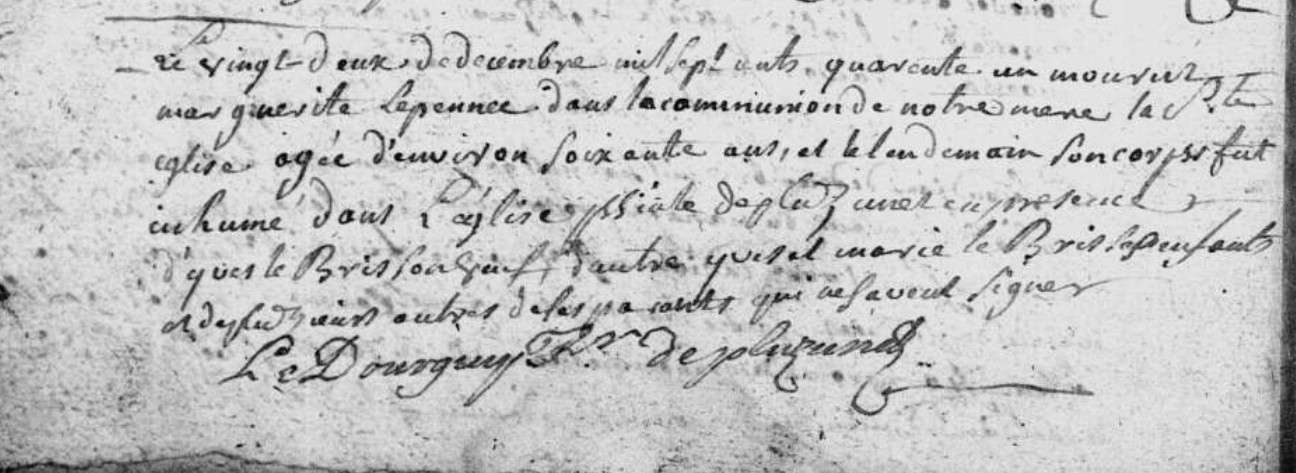 Le vingt-deux de decembre mil sept cents quarente un mourut
marguerite Lepennec dans la communion de notre mere la Ste
eglise agée d'environ soixante ans, et le lendemain son corps fut
inhumé dans L'église de pluzunet en presence
d'yves le Bris son veuf, d'autre yves et marie le Bris ses enfants
et de plusieurs autres de ses parants qui ne savent signer
Le Dourguy de pluzunet